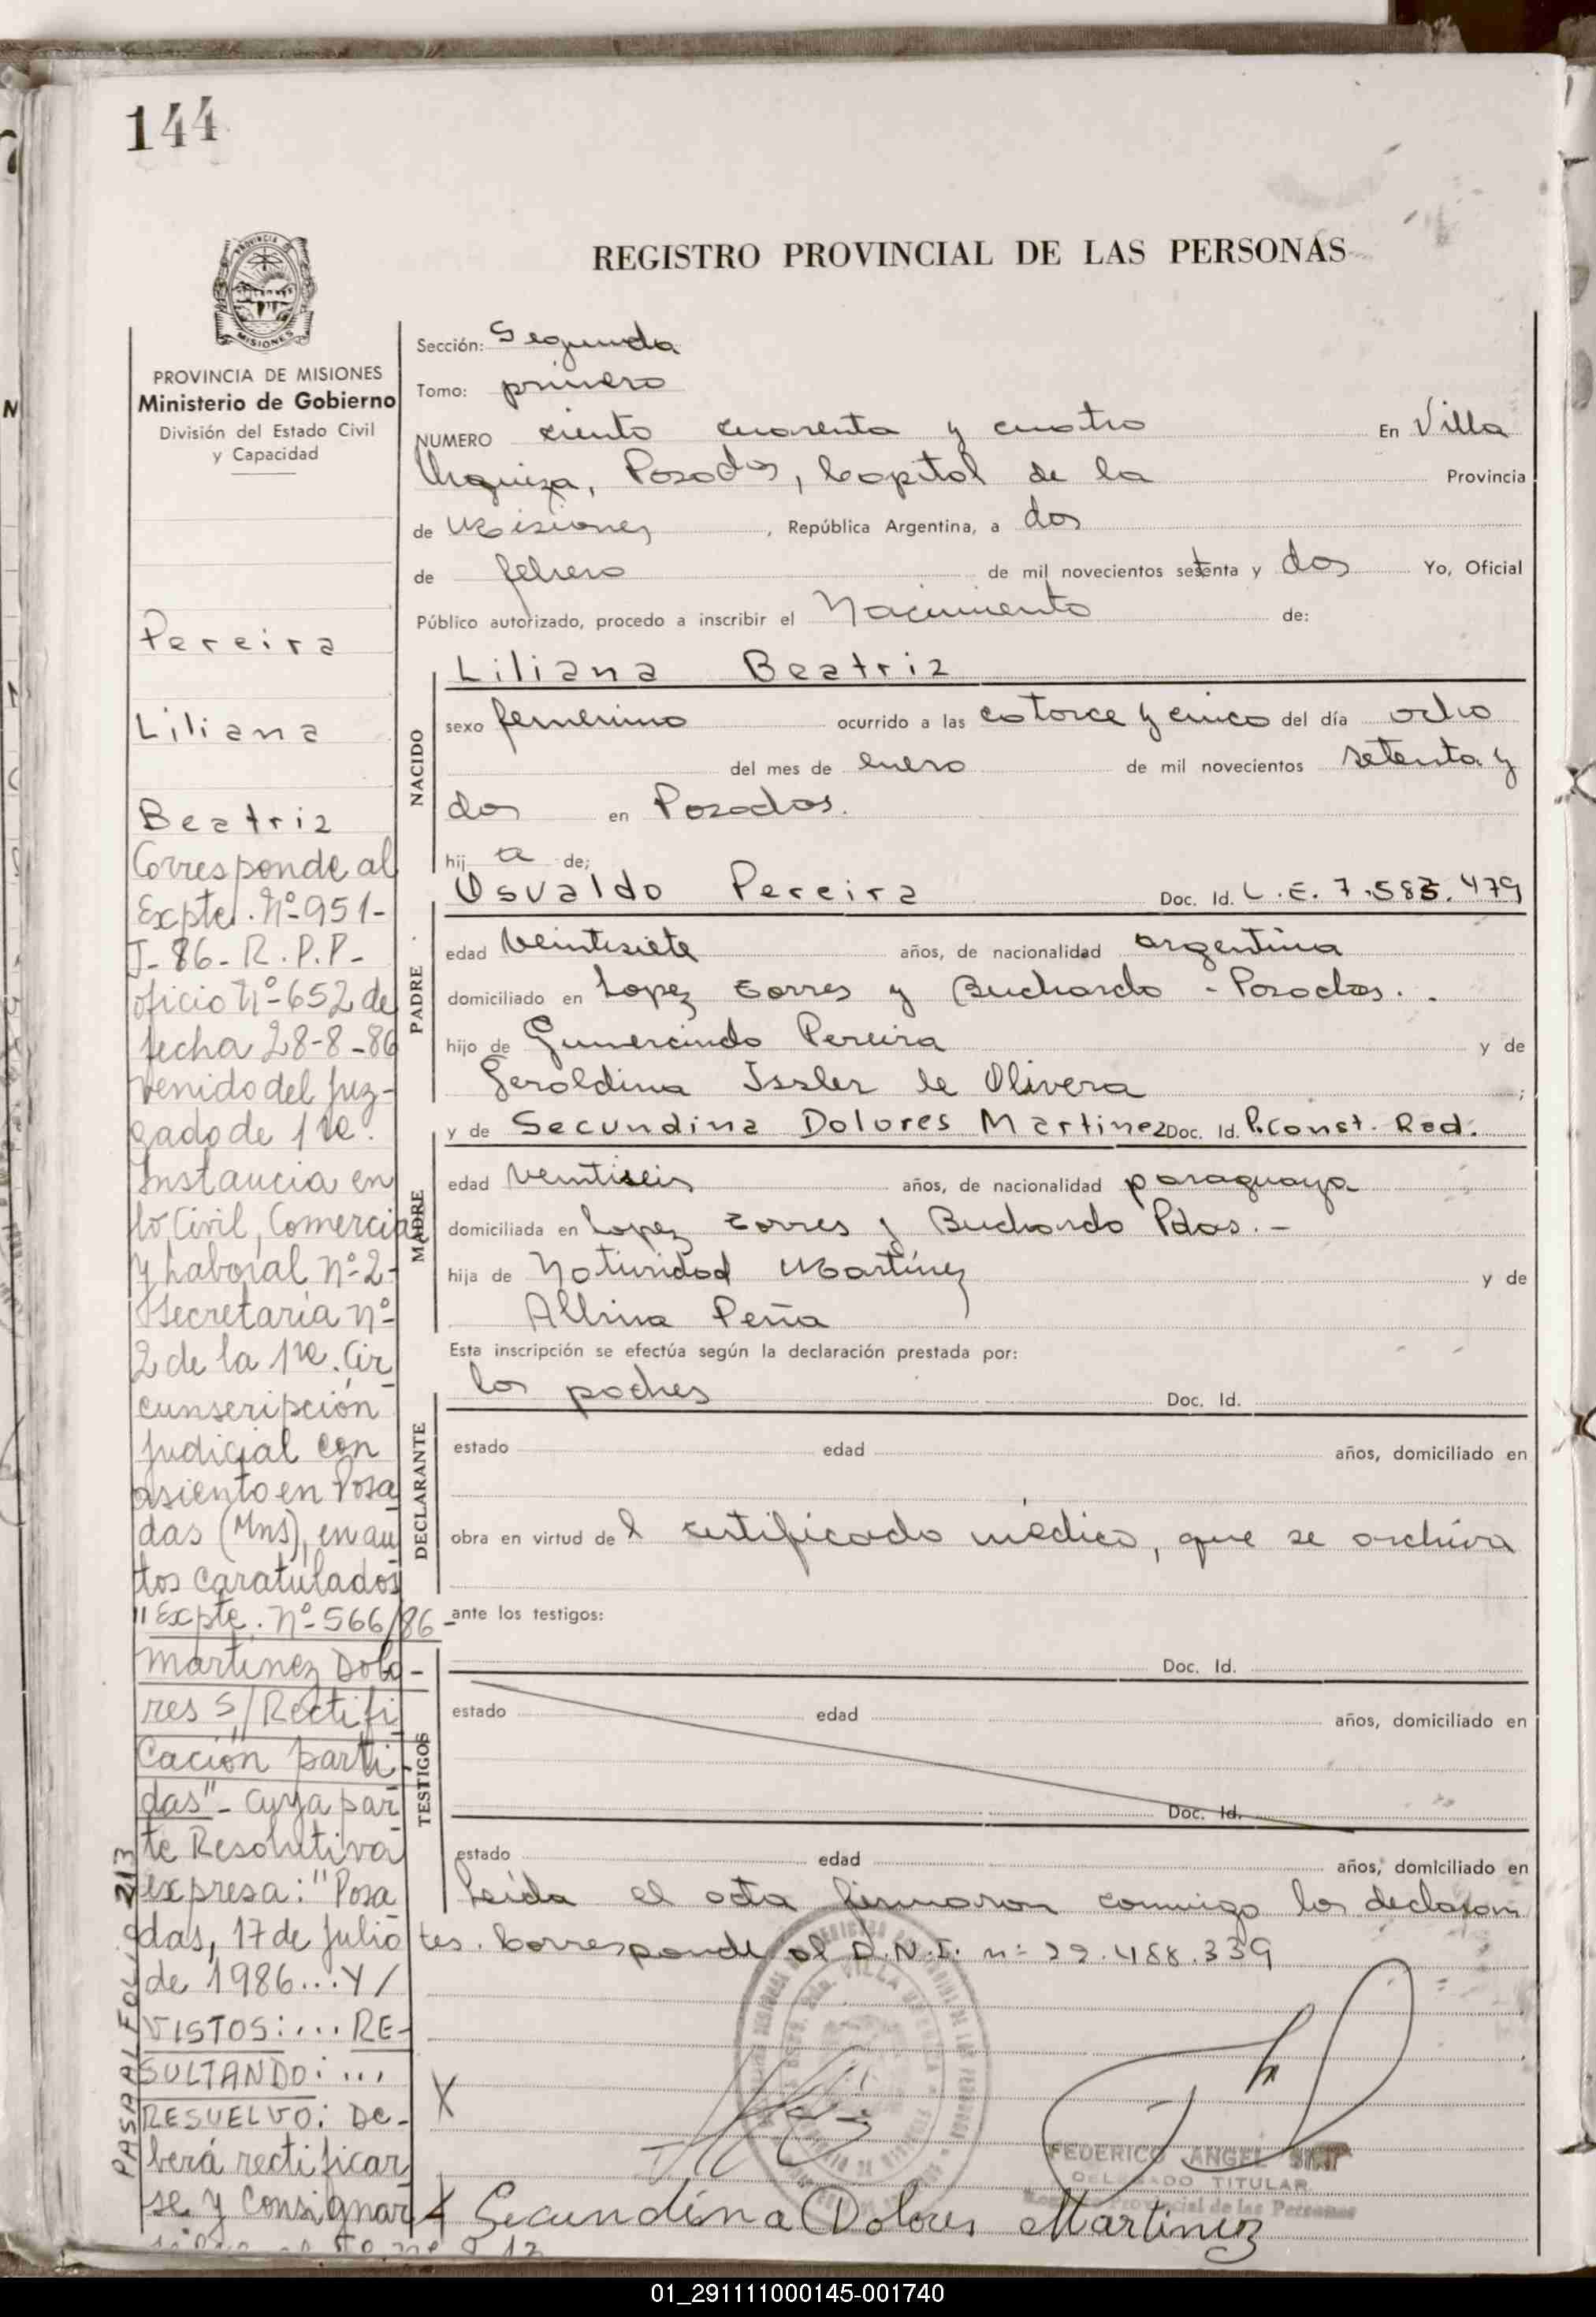 144
REGISTRO PROVINCIAL DE LAS PERSONAS
PROVINCIA DE MISIONES
PROVINCIA DE MISIONES
Ministerio de Gobierno
División del Estado Civil
y Capacidad
Pereira
Liliana
Beatriz
Corresponde al
Expte. Nº 951-
J-86-R.P.P-
oficio Nº-652 de
fecha 28-8-86
venido del Juz-
gado de 1ra.
Instancia en
lo Civil, Comercial
y Laboral nº-2-
Secretaría nº
2 de la 1ra. Cir
cunscripción
Judicial con
asiento en Posa
das (Mns), en au
tos caratulados
"Expte. Nº-566/86-
Martínez Dolo-
res S/ Rectifi
cación parti
das"- cuya par
te Resolutiva
expresa: "Posa
das, 17 de Julio
de 1986... Y/
VISTOS:... RE-
SULTANDO:...
RESUELVO: De-
berá rectificar
se y consignar
PASA AL FOLIO 213
Sección: Segunda
Tomo: primero
NUMERO ciento cuarenta y cuatro En Villa
Urquiza, Posadas, Capital de la Provincia
de Misiones, República Argentina, a dos
de febrero de mil novecientos setenta y dos Yo, Oficial
Público autorizado, procedo a inscribir el Nacimiento de:
NACIDO
Liliana Beatriz
sexo femenino ocurrido a las catorce y cinco del día ocho
del mes de enero de mil novecientos setenta y
dos en Posadas.
hij a de;
PADRE
Osvaldo Pereira Doc. Id. L.E. 7.583.479
edad veintisiete años, de nacionalidad argentina
domiciliado en Lopez Torres y Buchardo - Posadas.
hijo de Gumercindo Pereira y de
Geroldina Issler de Olivera ;
y de Secundina Dolores Martinez Doc. Id. P. Const. Rad.
MADRE
edad veintiseis años, de nacionalidad paraguaya
domiciliada en Lopez Torres y Buchardo Pdas.-
hija de Natividad Martínez y de
Albina Peña
Esta inscripción se efectúa según la declaración prestada por:
los padres Doc. Id.
DECLARANTE
estado edad años, domiciliado en
obra en virtud de l certificado médico, que se archiva
ante los testigos:
TESTIGOS
Doc. Id.
estado edad años, domiciliado en
Doc. Id.
estado edad años, domiciliado en
Leída el acta firmaron conmigo los declaran
tes. Corresponde al D.N.I. nº 22.488.339
X
FEDERICO ANGEL
DELEGADO TITULAR
Registro Provincial de las Personas
X Secundina Dolores Martinez
01_291111000145-001740